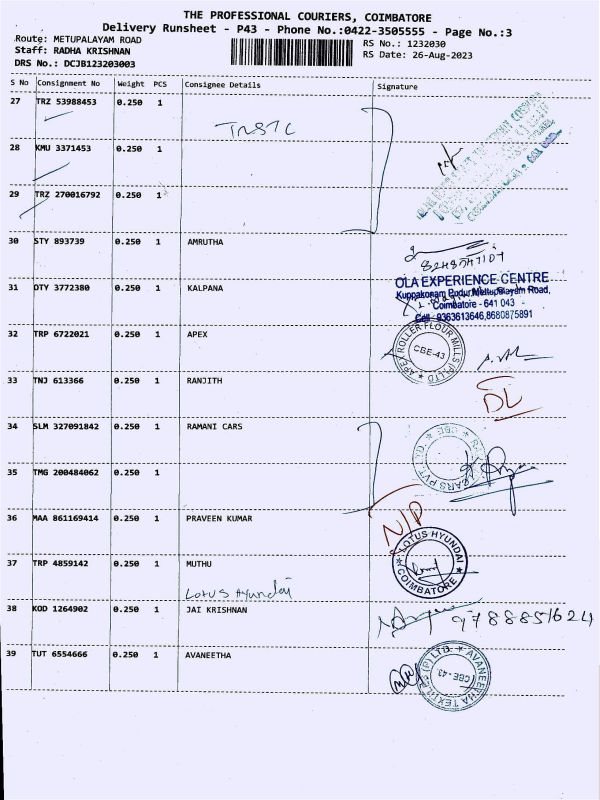 THE PROFESSIONAL COURIERS, COIMBATORE
Delivery Runsheet - P43 - Phone No.:0422-3505555 - Page No.:3
Route: METUPALAYAM ROAD
Staff: RADHA KRISHNAN
DRS No.: DCJB123203003
RS No.: 1232030
RS Date: 26-Aug-2023
S No Consignment No Weight PCS Consignee Details Signature
27 TRZ 53988453 0.250 1
TNSTC
28 KMU 3371453 0.250 1
29 TRZ 270016792 0.250 1
30 STY 893739 0.250 1 AMRUTHA
31 OTY 3772380 0.250 1 KALPANA
OLA EXPERIENCE CENTRE
Kuppakonam Pudur, Mettupalayam Road,
Coimbatore - 641 043
Cell - 9363613646,8680875891
32 TRP 6722021 0.250 1 APEX
APEX ROLLER FLOUR MILLS (P) LTD
CBE-43
33 TNJ 613366 0.250 1 RANJITH
DL
34 SLM 327091842 0.250 1 RAMANI CARS
CARS PVT. LTD. CBE
35 TMG 200484062 0.250 1
36 MAA 861169414 0.250 1 PRAVEEN KUMAR
N/P
37 TRP 4859142 0.250 1 MUTHU
Lotus Hyundai
LOTUS HYUNDAI
COIMBATORE
38 KOD 1264902 0.250 1 JAI KRISHNAN
9788851624
39 TUT 6554666 0.250 1 AVANEETHA
AVANEETHA TEXTILES (P) LTD.
CBE-43.